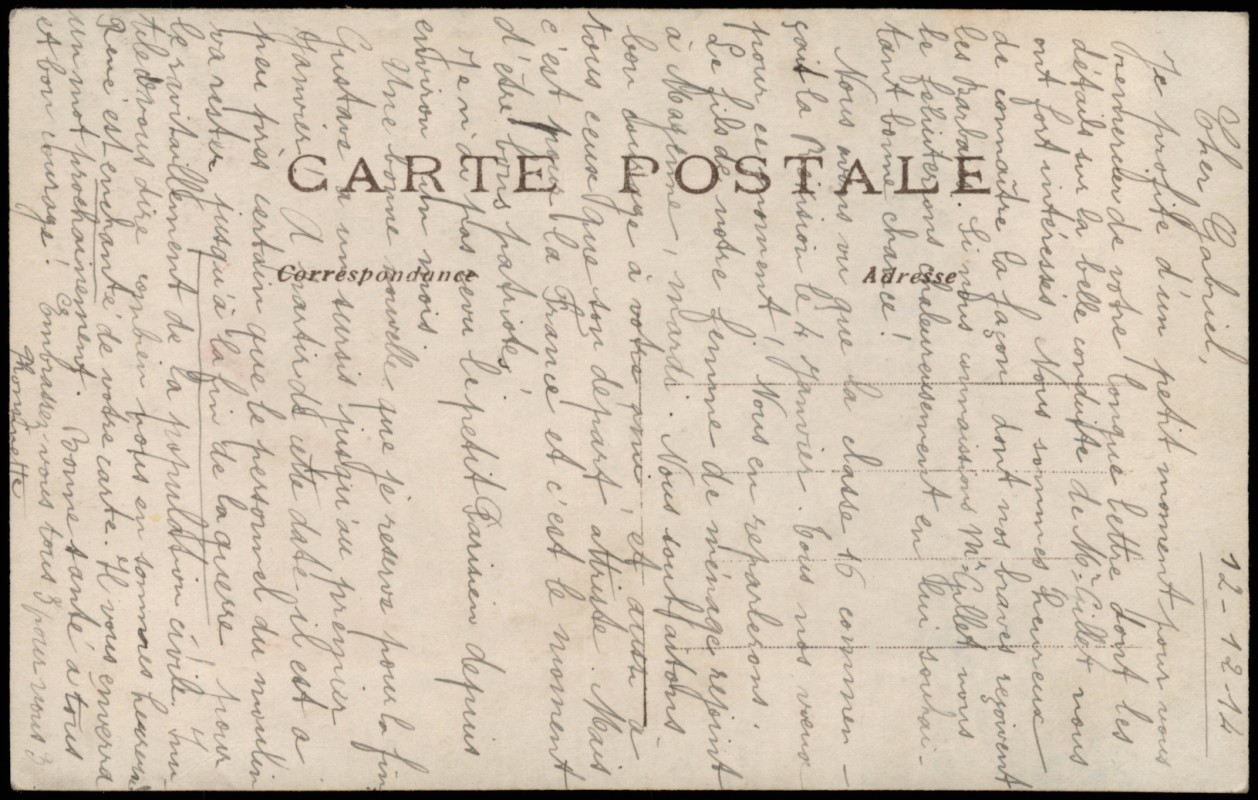 12-12-14
Cher Gabriel,
Je profite d'un petit moment pour vous
remercier de votre longue lettre dont les
détails sur la belle conduite de Mr Gillet nous
ont fort intéressés. Nous sommes heureux
de connaître la façon dont nos braves reçoivent
les Barbares. Si nous connaissions Mr Gillet nous
le féliciterions chaleureusement en lui souhai-
tant bonne chance!
Nous avons vu que la classe 16 commen-
çait la Révision le 4 Janvier. Tous nos vœux
pour ce moment! Nous en reparlerons.
Le fils de notre femme de ménage rejoint
à Mayenne, mardi. Nous souhaitons
bon courage à votre ami et aussi à
tous ceux que son départ attriste. Mais
c'est pour la France et c'est le moment
d'être bons patriotes!
Je n'ai pas revu le petit Parisien depuis
environ un mois.
Une bonne nouvelle que je réserve pour la fin
Gustave a un sursis jusqu'au premier
Janvier. A partir de cette date il est à
peu près certain que le personnel du moulin
va rester jusqu'à la fin de la guerre pour
le ravitaillement de la population civile. Inu-
tile de vous dire combien nous en sommes heureux
René est enchanté de votre carte. Il vous enverra
un mot prochainement. Bonne santé à tous
et bon courage! Embrassez-vous tous 3 pour nous 3
CARTE POSTALE
Correspondance
Adresse